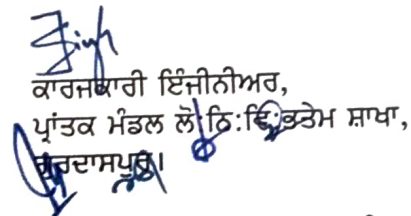 Singh
ਕਾਰਜਕਾਰੀ ਇੰਜੀਨੀਅਰ,
ਪ੍ਰਾਂਤਕ ਮੰਡਲ ਲੋ:ਨਿ:ਵਿ:ਭਤੇਮ ਸ਼ਾਖਾ,
ਗੁਰਦਾਸਪੁਰ।